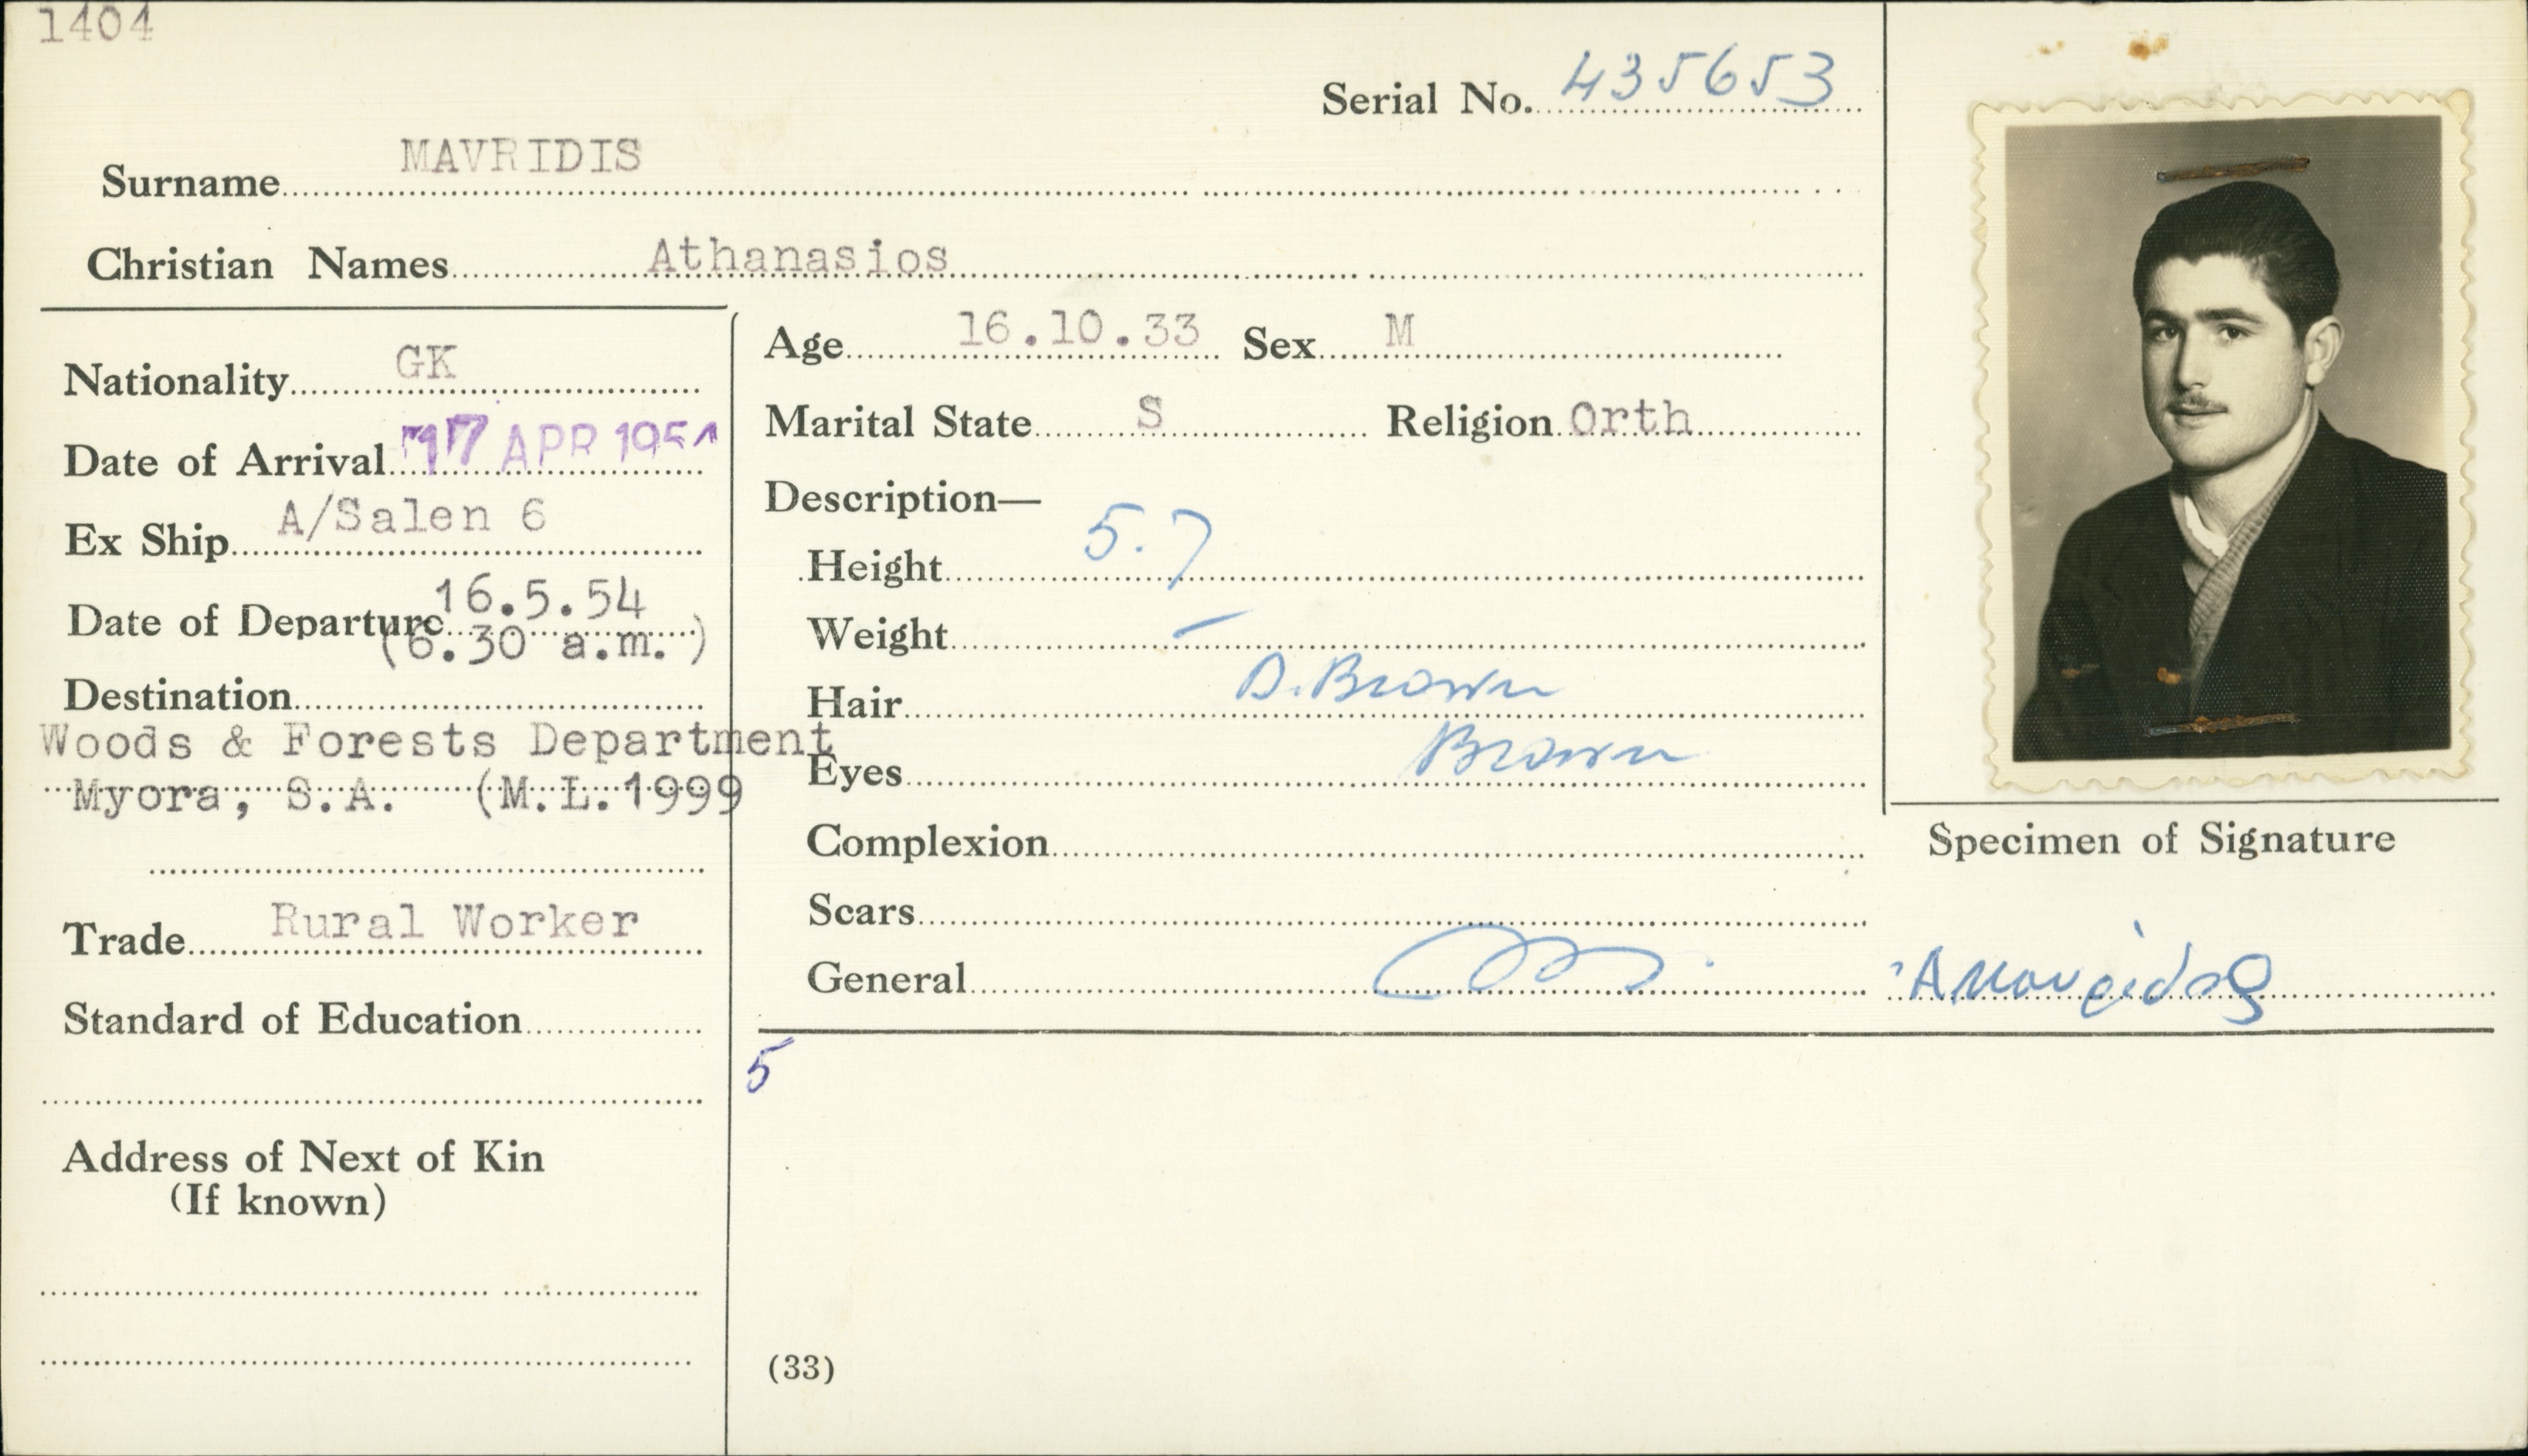 1404
Serial No. 435653
Surname MAVRIDIS
Christian Names Athanasios
Nationality GK
Date of Arrival 17 APR 1954
Ex Ship A/Salen 6
Date of Departure 16.5.54
(6.30 a.m.)
Destination
Woods & Forests Department
Myora, S.A. (M.L.1999
Trade Rural Worker
Standard of Education
Address of Next of Kin
(If known)
Age 16.10.33 Sex M
Marital State S Religion Orth
Description—
Height 5.7
Weight –
Hair D. Brown
Eyes Brown
Complexion
Scars
General
5
(33)
Specimen of Signature